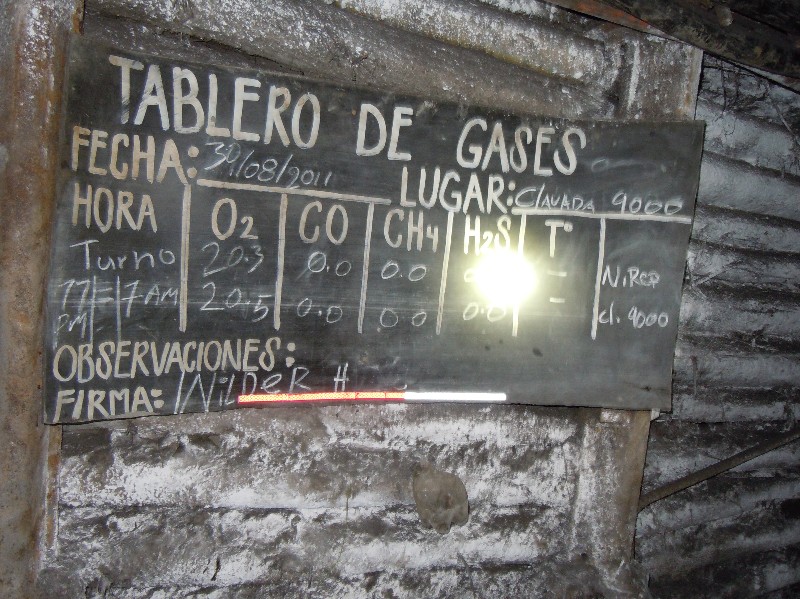 TABLERO DE GASES
FECHA: 30/08/2011
LUGAR: CLAVADA 9000
HORA O2 CO CH4 H2S T°
Turno 20.3 0.0 0.0 –
7 AM 20.5 0.0 0.0 0.0 –
PM cl. 9000
OBSERVACIONES:
FIRMA: WILDER H